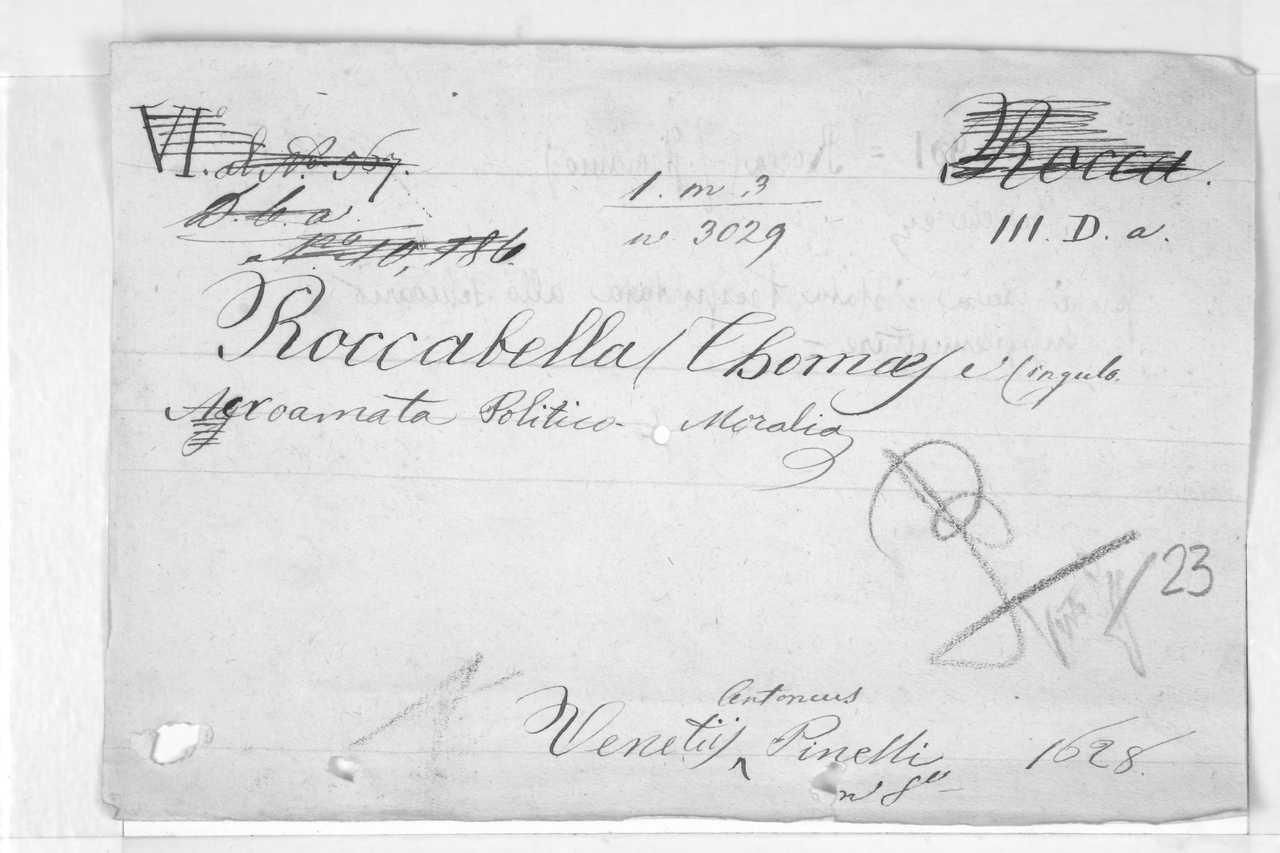 VI. al No. 567.
Rocca.
D. b. a.
1. m. 3
n. 3029
III. D. a.
10,786.
Roccabella (Thomas) Cingulo.
Acroamata Politico- Moralia
23
Antonius
Venetiis Pinelli 1628.
in 8°